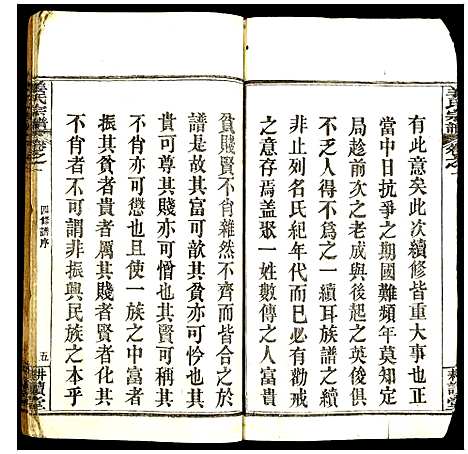 姜氏宗譜
卷之一
有此意矣此次續修皆重大事也正
當中日抗爭之期國難頻年莫知定
局趁前次之老成與後起之英俊俱
不乏人得不為之一續耳族譜之續
非止列名氏紀年代而已必有勸戒
之意存焉蓋聚一姓數傳之人富貴
貧賤賢不肖雜然不齊而皆合之於
譜是故其富可歆其貧亦可矜也其
貴可尊其賤亦可憎也其賢可稱其
不肖亦可愆也且使一族之中富者
振其貧者貴者厲其賤者賢者化其
不肖者不可謂非振興民族之本乎
姜氏宗譜
卷之一
四修譜序
五
耕讀堂